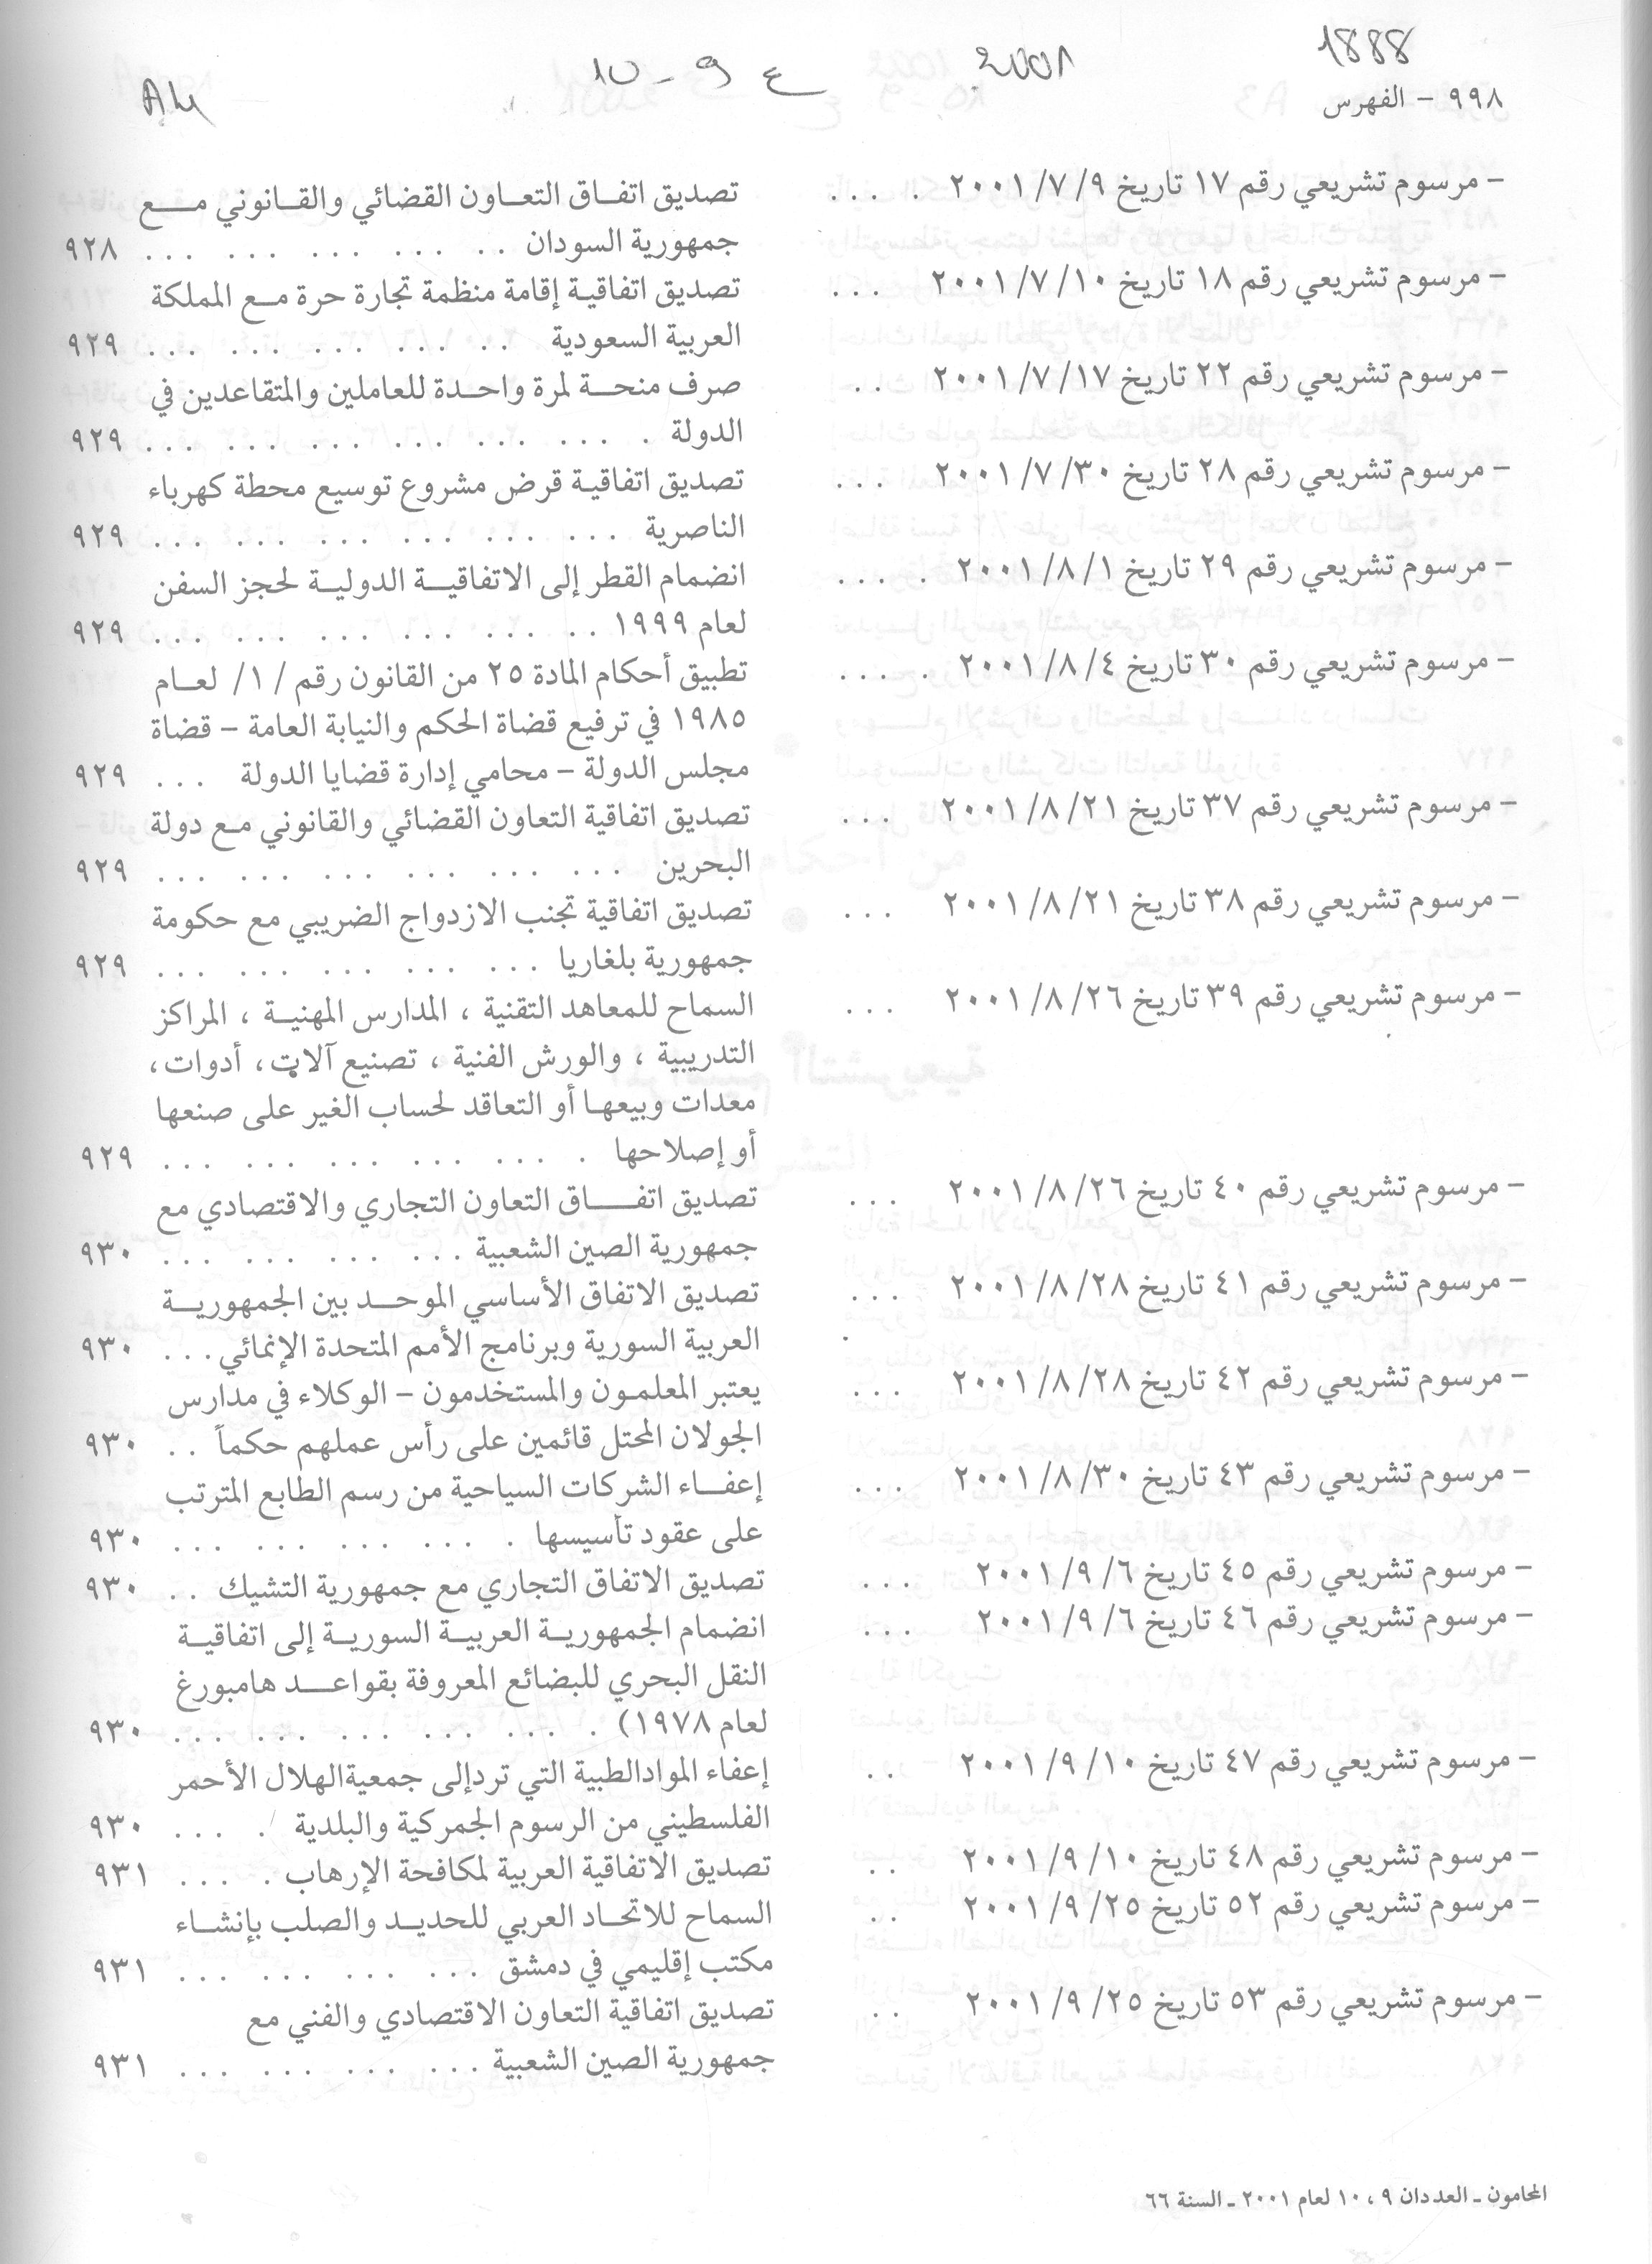 1888
2001
ع 9 - 10
A4
٩٩٨ - الفهرس
- مرسوم تشريعي رقم ١٧ تاريخ ٢٠٠١/٧/٩ . . . .
تصديق اتفاق التعاون القضائي والقانوني مع
جمهورية السودان . . ... ... ... ... ٩٢٨
- مرسوم تشريعي رقم ١٨ تاريخ ٢٠٠١/٧/١٠ ...
تصديق اتفاقية إقامة منظمة تجارة حرة مع المملكة
العربية السعودية . . ... ... ... ... ٩٢٩
- مرسوم تشريعي رقم ٢٢ تاريخ ٢٠٠١/٧/١٧ . .
صرف منحة لمرة واحدة للعاملين والمتقاعدين في
الدولة . ... ... ... ... ... ... ٩٢٩
- مرسوم تشريعي رقم ٢٨ تاريخ ٢٠٠١/٧/٣٠ ...
تصديق اتفاقية قرض مشروع توسيع محطة كهرباء
الناصرية ... ... ... ... ... ... ٩٢٩
- مرسوم تشريعي رقم ٢٩ تاريخ ٢٠٠١/٨/١ . ...
انضمام القطر إلى الاتفاقية الدولية لحجز السفن
لعام ١٩٩٩ . . ... ... ... ... ... ٩٢٩
- مرسوم تشريعي رقم ٣٠ تاريخ ٢٠٠١/٨/٤ . ...
تطبيق أحكام المادة ٢٥ من القانون رقم /١/ لعام
١٩٨٥ في ترفيع قضاة الحكم والنيابة العامة - قضاة
مجلس الدولة - محامي إدارة قضايا الدولة ... ٩٢٩
- مرسوم تشريعي رقم ٣٧ تاريخ ٢٠٠١/٨/٢١ ...
تصديق اتفاقية التعاون القضائي والقانوني مع دولة
البحرين ... ... ... ... ... ... ٩٢٩
- مرسوم تشريعي رقم ٣٨ تاريخ ٢٠٠١/٨/٢١ ...
تصديق اتفاقية تجنب الازدواج الضريبي مع حكومة
جمهورية بلغاريا ... ... ... ... ... ٩٢٩
- مرسوم تشريعي رقم ٣٩ تاريخ ٢٠٠١/٨/٢٦ ...
السماح للمعاهد التقنية ، المدارس المهنية ، المراكز
التدريبية ، والورش الفنية ، تصنيع آلات ، أدوات ،
معدات وبيعها أو التعاقد لحساب الغير على صنعها
أو إصلاحها . ... ... ... ... ... ٩٢٩
- مرسوم تشريعي رقم ٤٠ تاريخ ٢٠٠١/٨/٢٦ ...
تصديق اتفاق التعاون التجاري والاقتصادي مع
جمهورية الصين الشعبية ... ... ... ... ٩٣٠
- مرسوم تشريعي رقم ٤١ تاريخ ٢٠٠١/٨/٢٨ ...
تصديق الاتفاق الأساسي الموحد بين الجمهورية
العربية السورية وبرنامج الأمم المتحدة الإنمائي ... ٩٣٠
- مرسوم تشريعي رقم ٤٢ تاريخ ٢٠٠١/٨/٢٨ ...
يعتبر المعلمون والمستخدمون - الوكلاء في مدارس
الجولان المحتل قائمين على رأس عملهم حكماً . . ٩٣٠
- مرسوم تشريعي رقم ٤٣ تاريخ ٢٠٠١/٨/٣٠ ...
إعفاء الشركات السياحية من رسم الطابع المترتب
على عقود تأسيسها . ... ... ... ... ٩٣٠
- مرسوم تشريعي رقم ٤٥ تاريخ ٢٠٠١/٩/٦ ...
تصديق الاتفاق التجاري مع جمهورية التشيك . . ٩٣٠
- مرسوم تشريعي رقم ٤٦ تاريخ ٢٠٠١/٩/٦ ...
انضمام الجمهورية العربية السورية إلى اتفاقية
النقل البحري للبضائع المعروفة بقواعد هامبورغ
لعام ١٩٧٨) . ... ... ... ... ... ٩٣٠
- مرسوم تشريعي رقم ٤٧ تاريخ ٢٠٠١/٩/١٠ . .
إعفاء المواد الطبية التي ترد إلى جمعية الهلال الأحمر
الفلسطيني من الرسوم الجمركية والبلدية . ... ٩٣٠
- مرسوم تشريعي رقم ٤٨ تاريخ ٢٠٠١/٩/١٠ . .
تصديق الاتفاقية العربية لمكافحة الإرهاب . ... ٩٣١
- مرسوم تشريعي رقم ٥٢ تاريخ ٢٠٠١/٩/٢٥ . .
السماح للاتحاد العربي للحديد والصلب بإنشاء
مكتب إقليمي في دمشق ... ... ... ... ٩٣١
- مرسوم تشريعي رقم ٥٣ تاريخ ٢٠٠١/٩/٢٥ . .
تصديق اتفاقية التعاون الاقتصادي والفني مع
جمهورية الصين الشعبية ... ... ... ... ٩٣١
المحامون - العددان ٩ ، ١٠ لعام ٢٠٠١ - السنة ٦٦